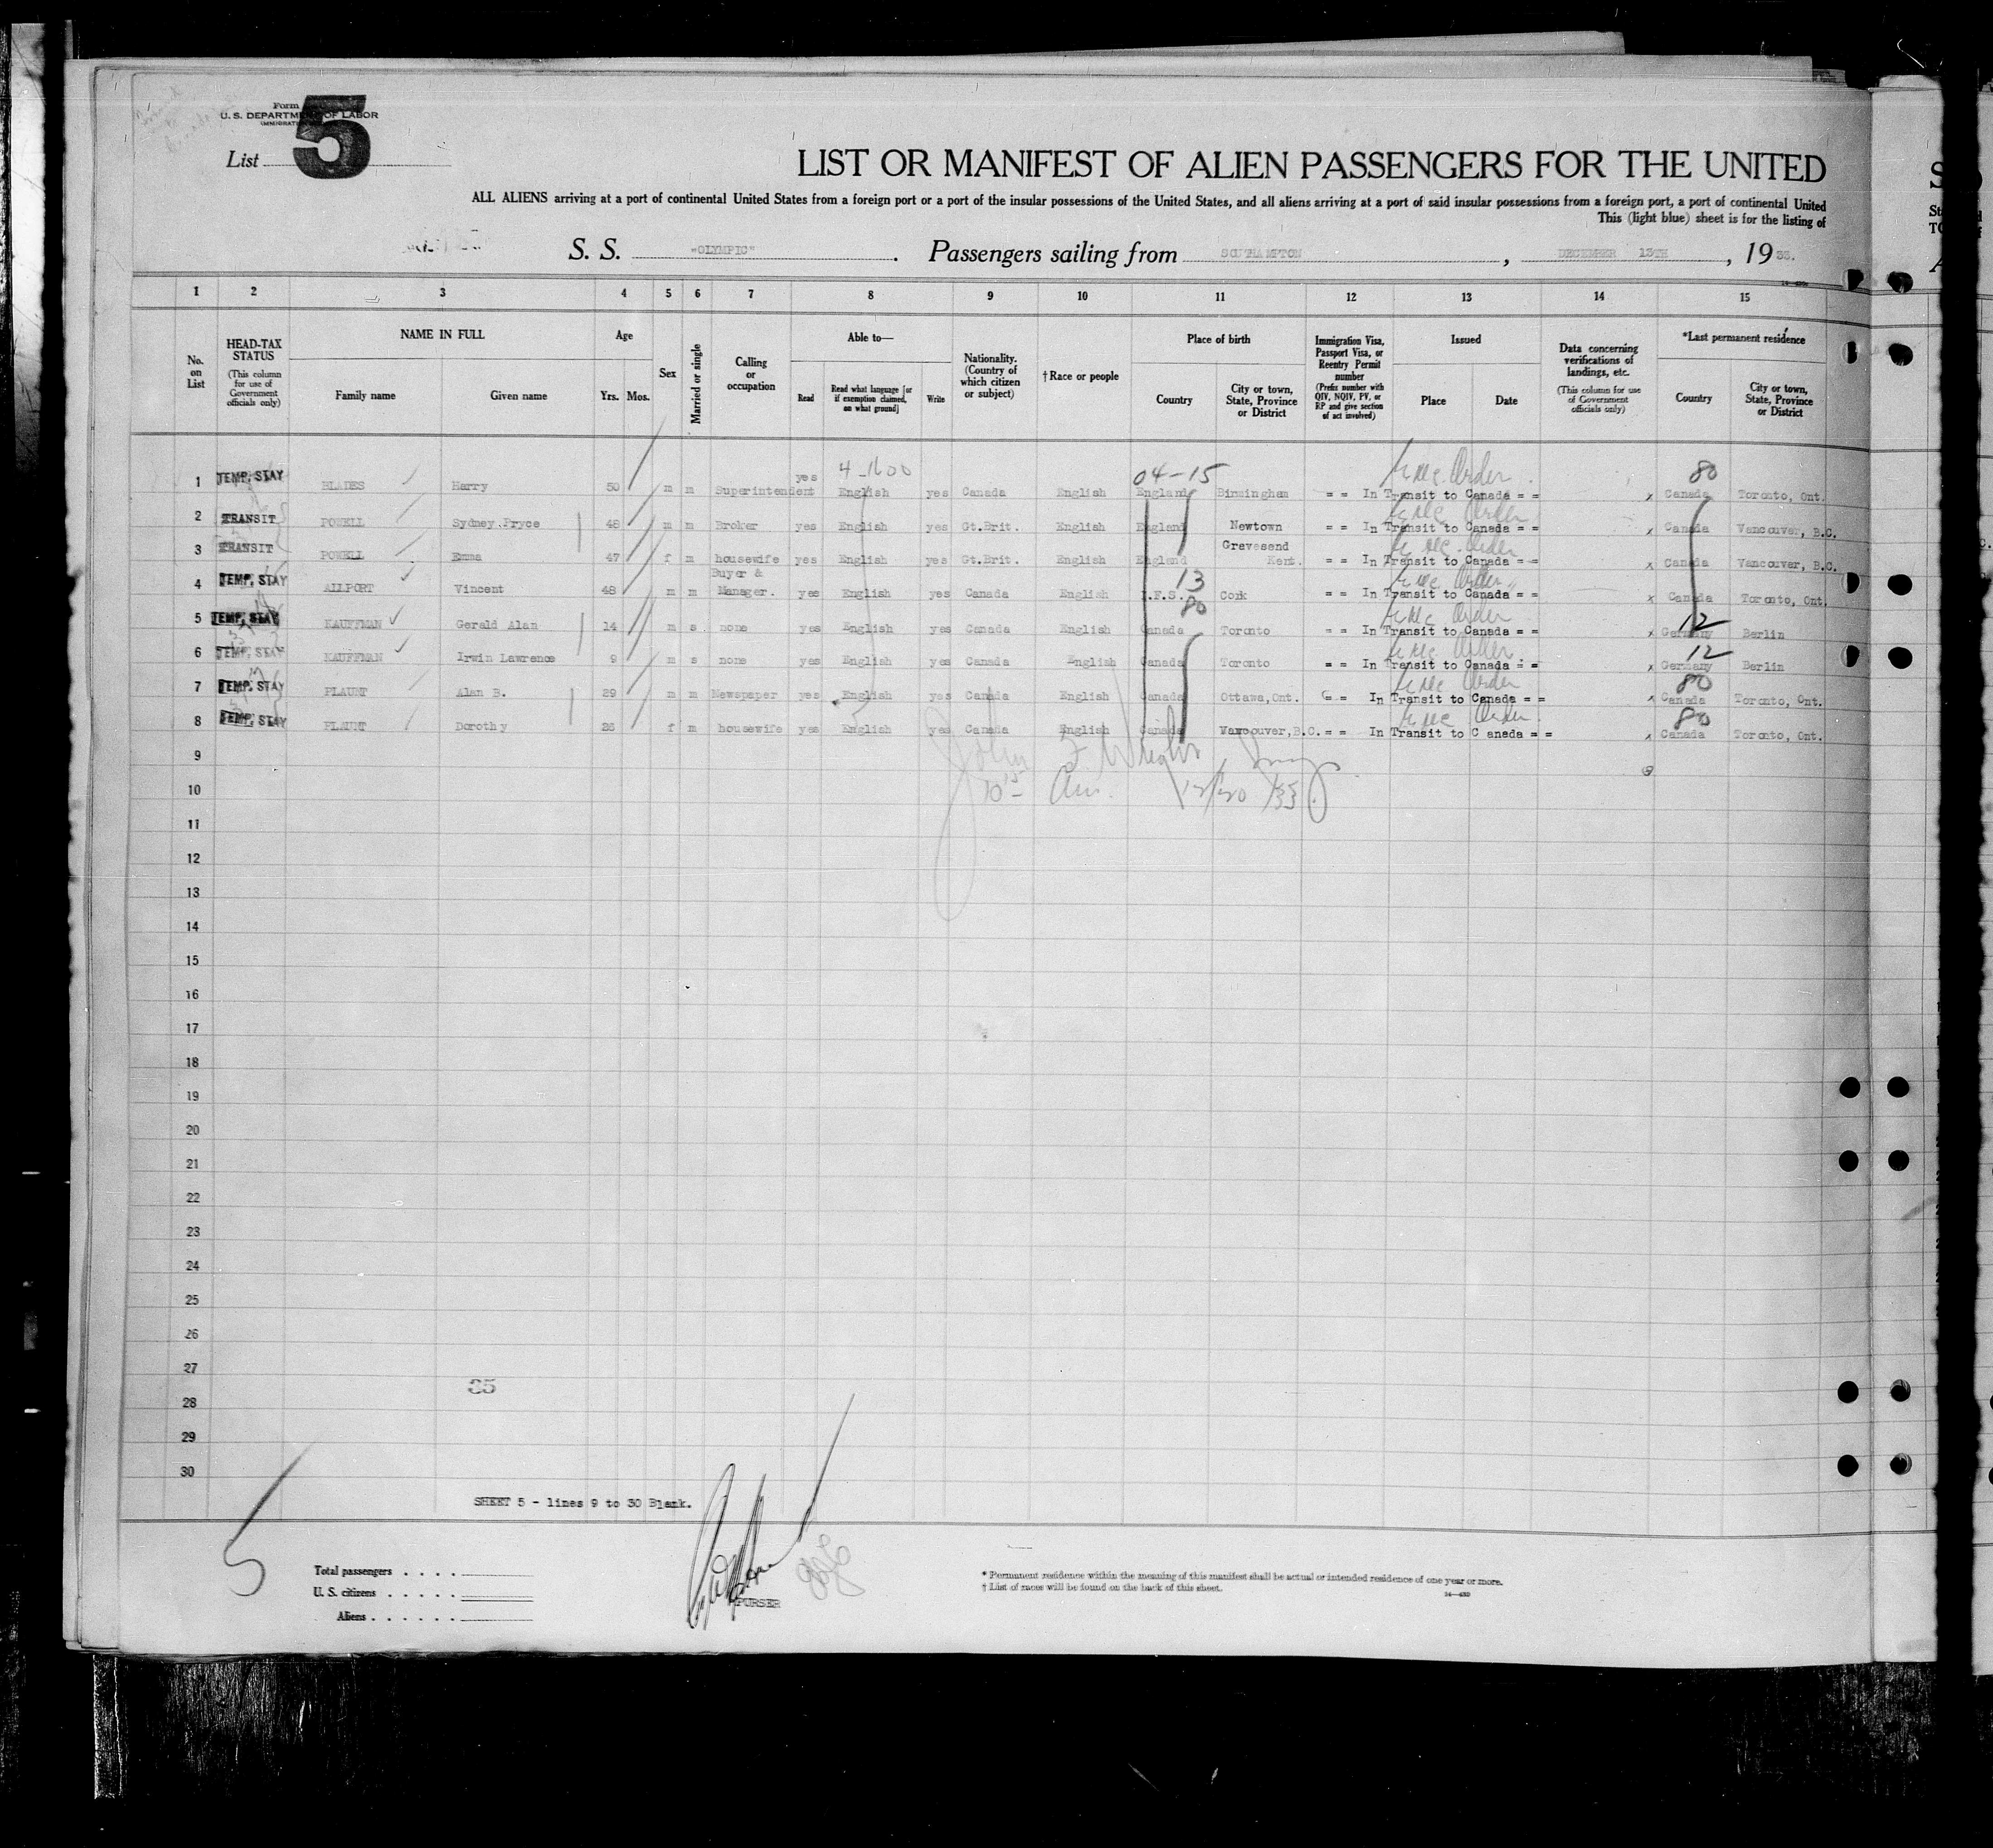 Form
U. S. DEPARTMENT OF LABOR
List 5
LIST OR MANIFEST OF ALIEN PASSENGERS FOR THE UNITED
ALL ALIENS arriving at a port of continental United States from a foreign port or a port of the insular possessions of the United States, and all aliens arriving at a port of said insular possessions from a foreign port, a port of continental United
This (light blue) sheet is for the listing of
S. S. "OLYMPIC". Passengers sailing from SOUTHAMPTON, DECEMBER 13TH, 1933.
1 2 3 4 5 6 7 8 9 10 11 12 13 14 15
No. on List
HEAD-TAX STATUS
(This column for use of Government officials only)
NAME IN FULL
Family name Given name
Age
Yrs. Mos.
Sex
Married or single
Calling or occupation
Able to—
Read
Read what language [or if exemption claimed, on what ground]
Write
Nationality. (Country of which citizen or subject)
†Race or people
Place of birth
Country
City or town, State, Province or District
Immigration Visa, Passport Visa, or Reentry Permit number
(Prefix number with QIV, NQIV, PV, or RP and give section of act involved)
Issued
Place Date
Data concerning verifications of landings, etc.
(This column for use of Government officials only)
*Last permanent residence
Country
City or town, State, Province or District
04-15 80
1 TEMP. STAY BLADES Harry 50 m m Superintendent yes English yes Canada English England Birmingham = = In Transit to Canada = = x Canada Toronto, Ont.
2 TRANSIT POWELL Sydney Pryce 48 m m Broker yes English yes Gt.Brit. English England Newtown = = In Transit to Canada = = x Canada Vancouver, B.C.
3 TRANSIT POWELL Emma 47 f m housewife yes English yes Gt.Brit. English England Gravesend Kent. = = In Transit to Canada = = x Canada Vancouver, B.C.
13
4 TEMP. STAY AILPORT Vincent 48 m m Buyer & Manager. yes English yes Canada English I.F.S. Cork = = In Transit to Canada = = x Canada Toronto, Ont.
80 12
5 TEMP. STAY KAUFFMAN Gerald Alan 14 m s none yes English yes Canada English Canada Toronto = = In Transit to Canada = = x Germany Berlin
12
6 TEMP. STAY KAUFFMAN Irwin Lawrence 9 m s none yes English yes Canada English Canada Toronto = = In Transit to Canada = = x Germany Berlin
80
7 TEMP. STAY PLAUNT Alan B. 29 m m Newspaper yes English yes Canada English Canada Ottawa, Ont. = = In Transit to Canada = = x Canada Toronto, Ont.
80
8 TEMP. STAY PLAUNT Dorothy 26 f m housewife yes English yes Canada English Canada Vancouver, B.C. = = In Transit to Canada = = x Canada Toronto, Ont.
9
10
11
12
13
14
15
16
17
18
19
20
21
22
23
24
25
26
27
35
28
29
30
SHEET 5 - lines 9 to 30 Blank.
5
Total passengers . . . .
U. S. citizens . . . . .
Aliens . . . . . .
PURSER
* Permanent residence within the meaning of this manifest shall be actual or intended residence of one year or more.
† List of races will be found on the back of this sheet.